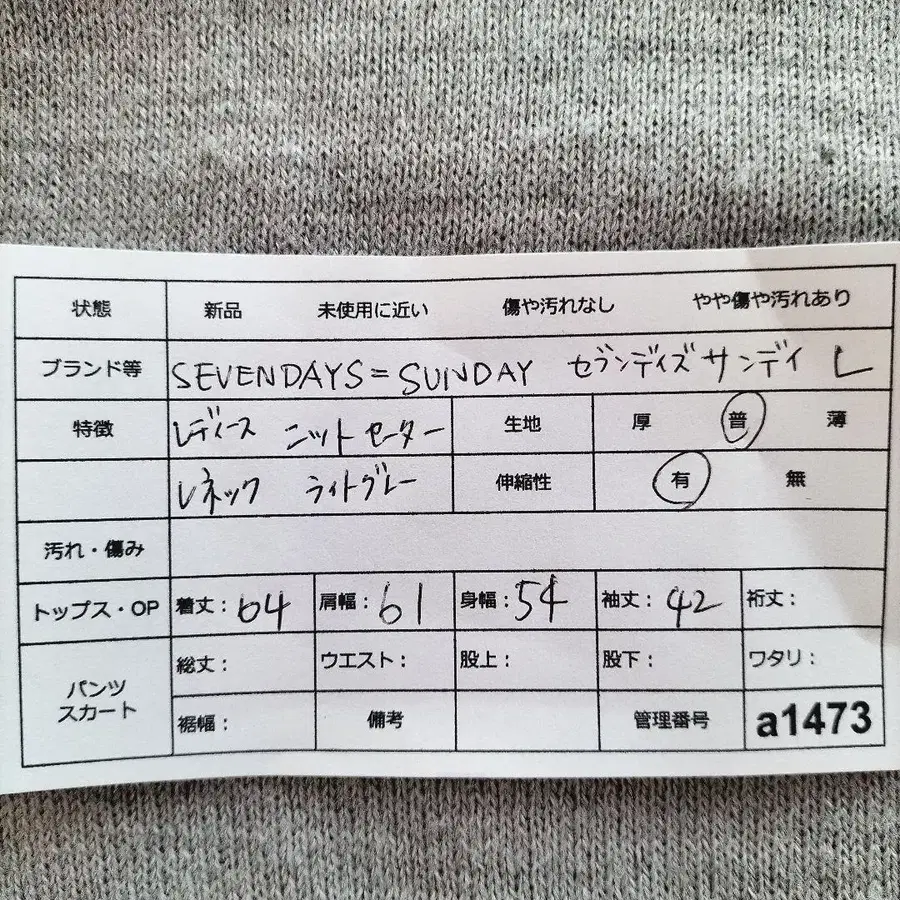 状態 新品 未使用に近い 傷や汚れなし やや傷や汚れあり
ブランド等 SEVENDAYS=SUNDAY セブンデイズサンデイ L
特徴 レディース ニットセーター 生地 厚 普 薄
Vネック ライトグレー 伸縮性 有 無
汚れ・傷み
トップス・OP 着丈: 64 肩幅: 61 身幅: 54 袖丈: 42 裄丈:
パンツ スカート 総丈: ウエスト: 股上: 股下: ワタリ:
裾幅: 備考 管理番号 a1473